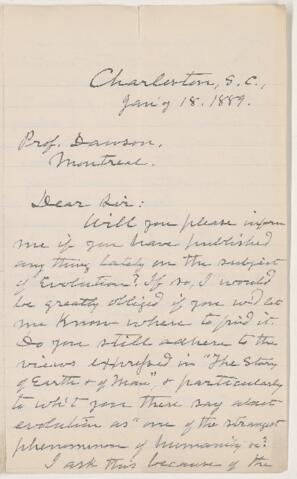 Charleston, S.C.,
Jan'y 18. 1889.
Prof. Dawson,
Montreal.
Dear Sir:
Will you please inform
me if you have published
any thing lately on the subject
of Evolution? If so, I would
be greatly obliged if you wd let
me know where to find it.
Do you still adhere to the
views expressed in "The Story
of Earth & of Man," & particularly
to wh't you there say about
evolution as "one of the strangest
phenomenon of humanity &c?
I ask this because of the